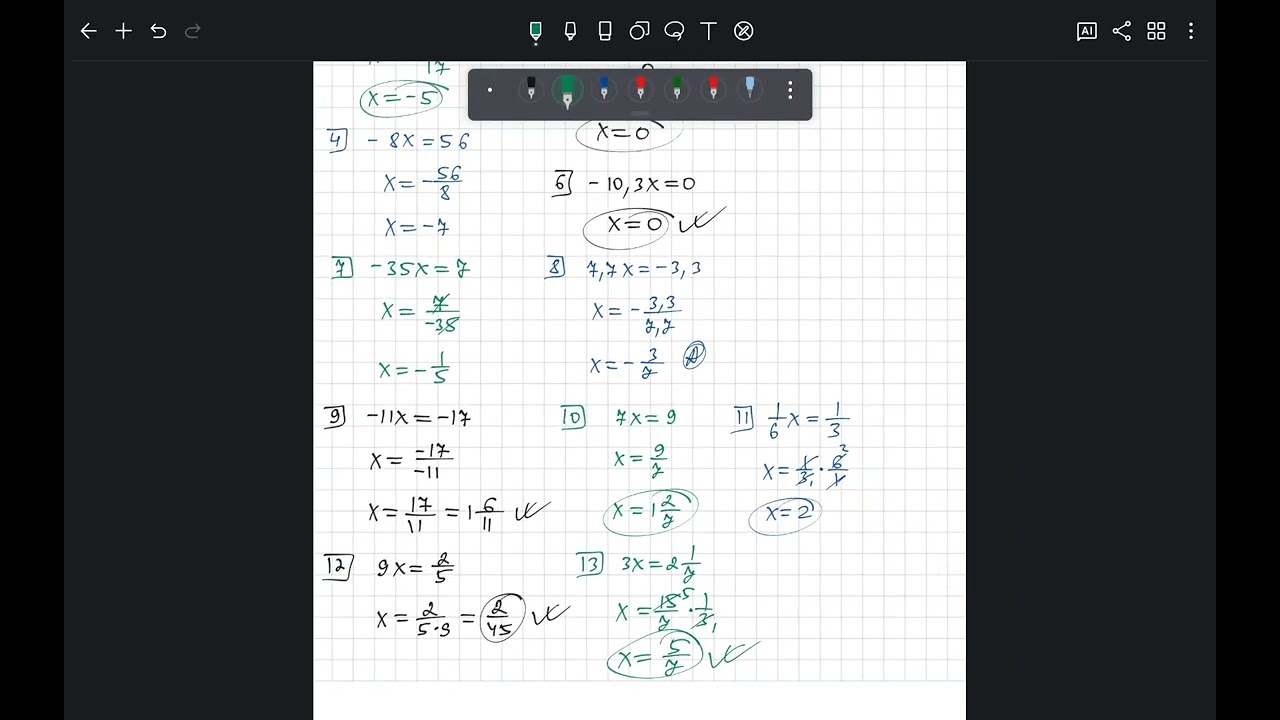 AI
17
x = -5
x = 0
4 - 8x = 56
x = - 56/8
x = -7
6 - 10,3x = 0
x = 0
7 -35x = 7
x = 7/-35
x = - 1/5
8 7,7x = -3,3
x = - 3,3/7,7
x = - 3/7
9 -11x = -17
x = -17/-11
x = 17/11 = 1 6/11
10 7x = 9
x = 9/7
x = 1 2/7
11 1/6 x = 1/3
x = 1/3 1 · 6 2/1
x = 2
12 9x = 2/5
x = 2/5·9 = 2/45
13 3x = 2 1/7
x = 15 5/7 · 1/3 1
x = 5/7